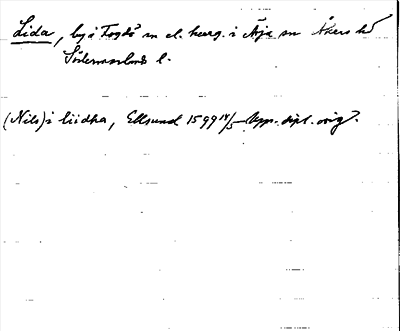 Lida, by i Fogdö sn el. herrg. i Ärja sn Åkers hd
Södermanlands l.
(Nils) i liidha, Ellsund 1599 18/5 Upps. dipl. orig.